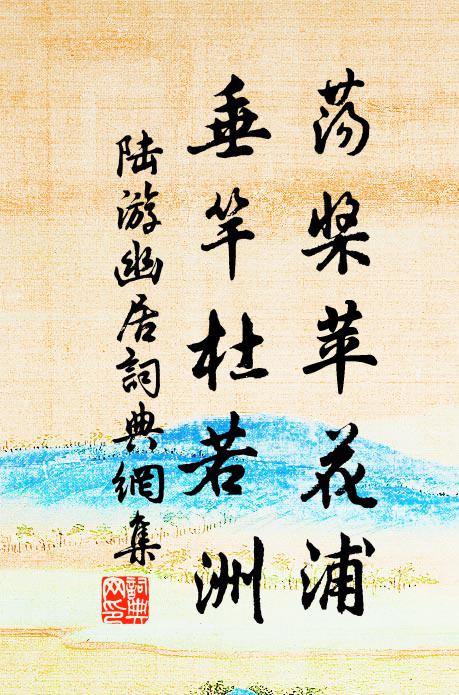 荡桨苹花浦
垂竿杜若洲
陆游幽居詞典網集